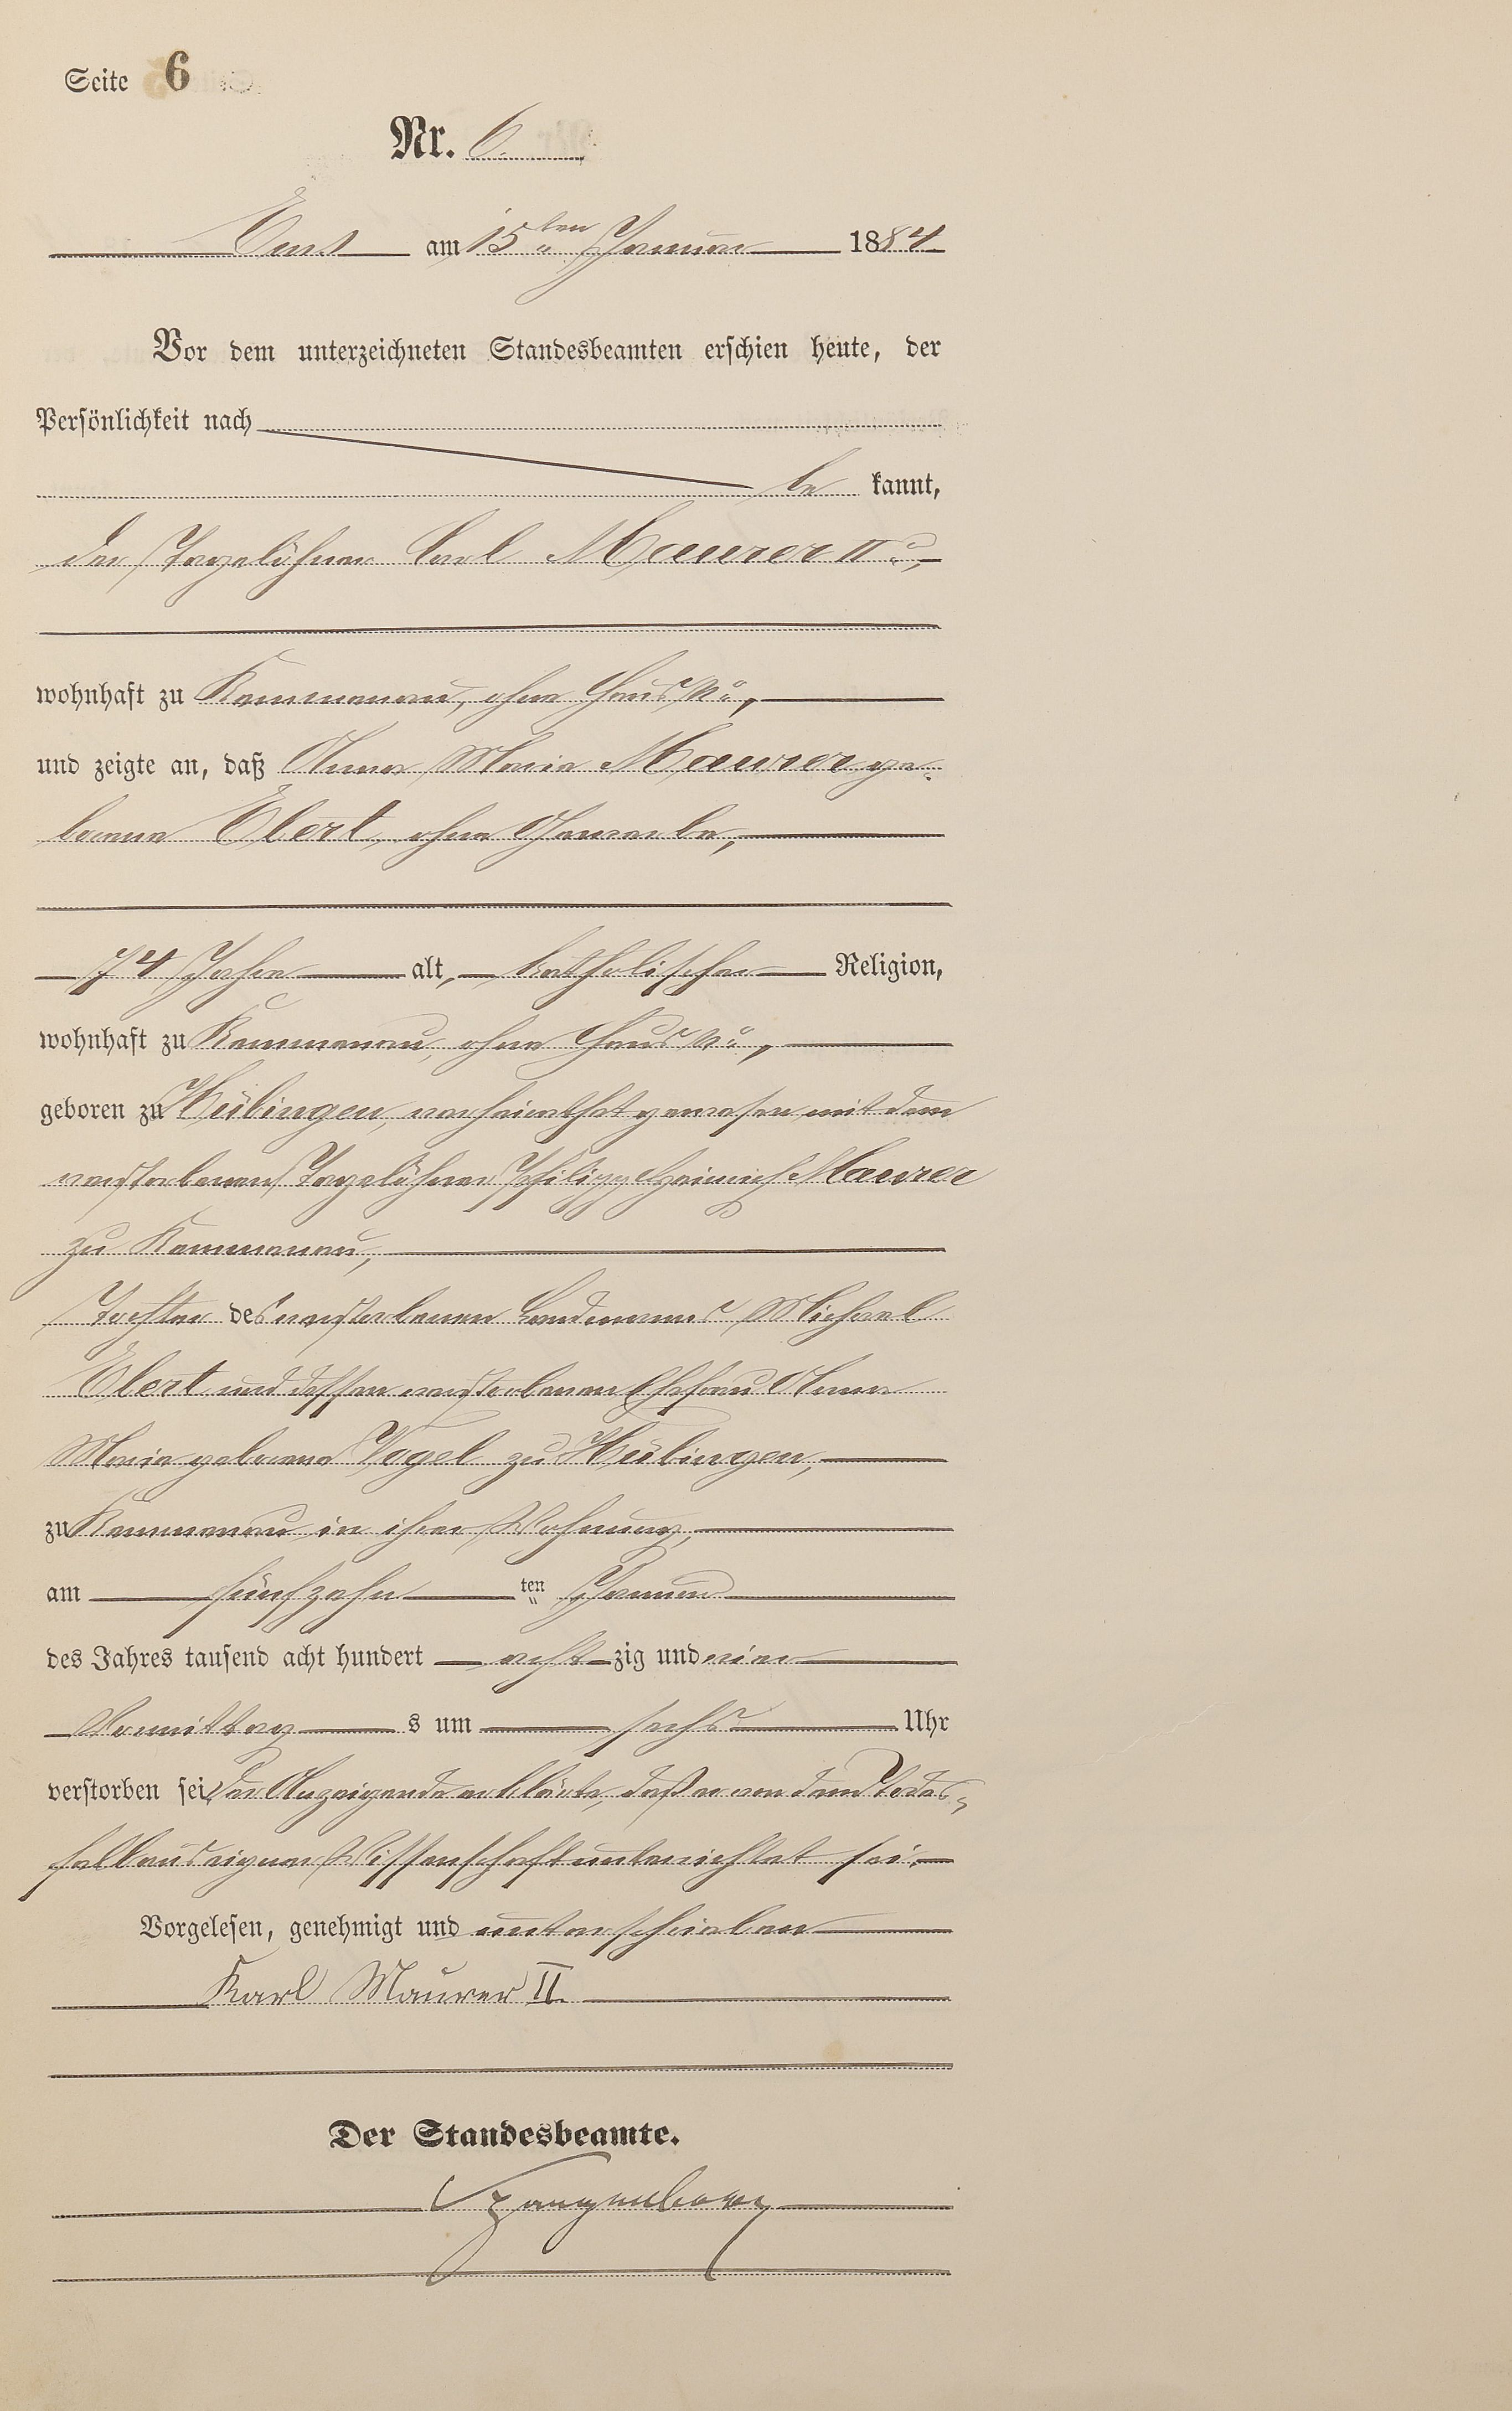 Seite 6
Nr. 6.
Ems am 15ten Januar 1884
Vor dem unterzeichneten Standesbeamten erschien heute, der
Persönlichkeit nach
be kannt,
der Tagelöhner Carl Maurer IIr,
wohnhaft zu Kemmenau, ohne Haus No,
und zeigte an, daß Anna Maria Maurer ge-
borene Ebert, ohne Gewerbe,
74 Jahre alt, katholischer Religion,
wohnhaft zu Kemmenau, ohne Haus No,
geboren zu Hübingen, verheirathet gewesen mit dem
verstorbenen Tagelöhner Philipp Heinrich Maurer
zu Kemmenau,
Tochter des verstorbenen Landmanns Michael
Ebert und dessen verstorbenen Ehefrau Anna
Maria geborene Vogel zu Hübingen,
zu Kemmenau in ihrer Wohnung,
am fünfzehn ten Januar
des Jahres tausend acht hundert acht zig und vier
Vormittag s um sechs Uhr
verstorben sei, der Anzeigende erklärte, daß er von dem Todes-
fall aus eigner Wissenschaft unterrichtet sei.
Vorgelesen, genehmigt und unterschrieben
Karl Maurer II.
Der Standesbeamte.
Spangenberg